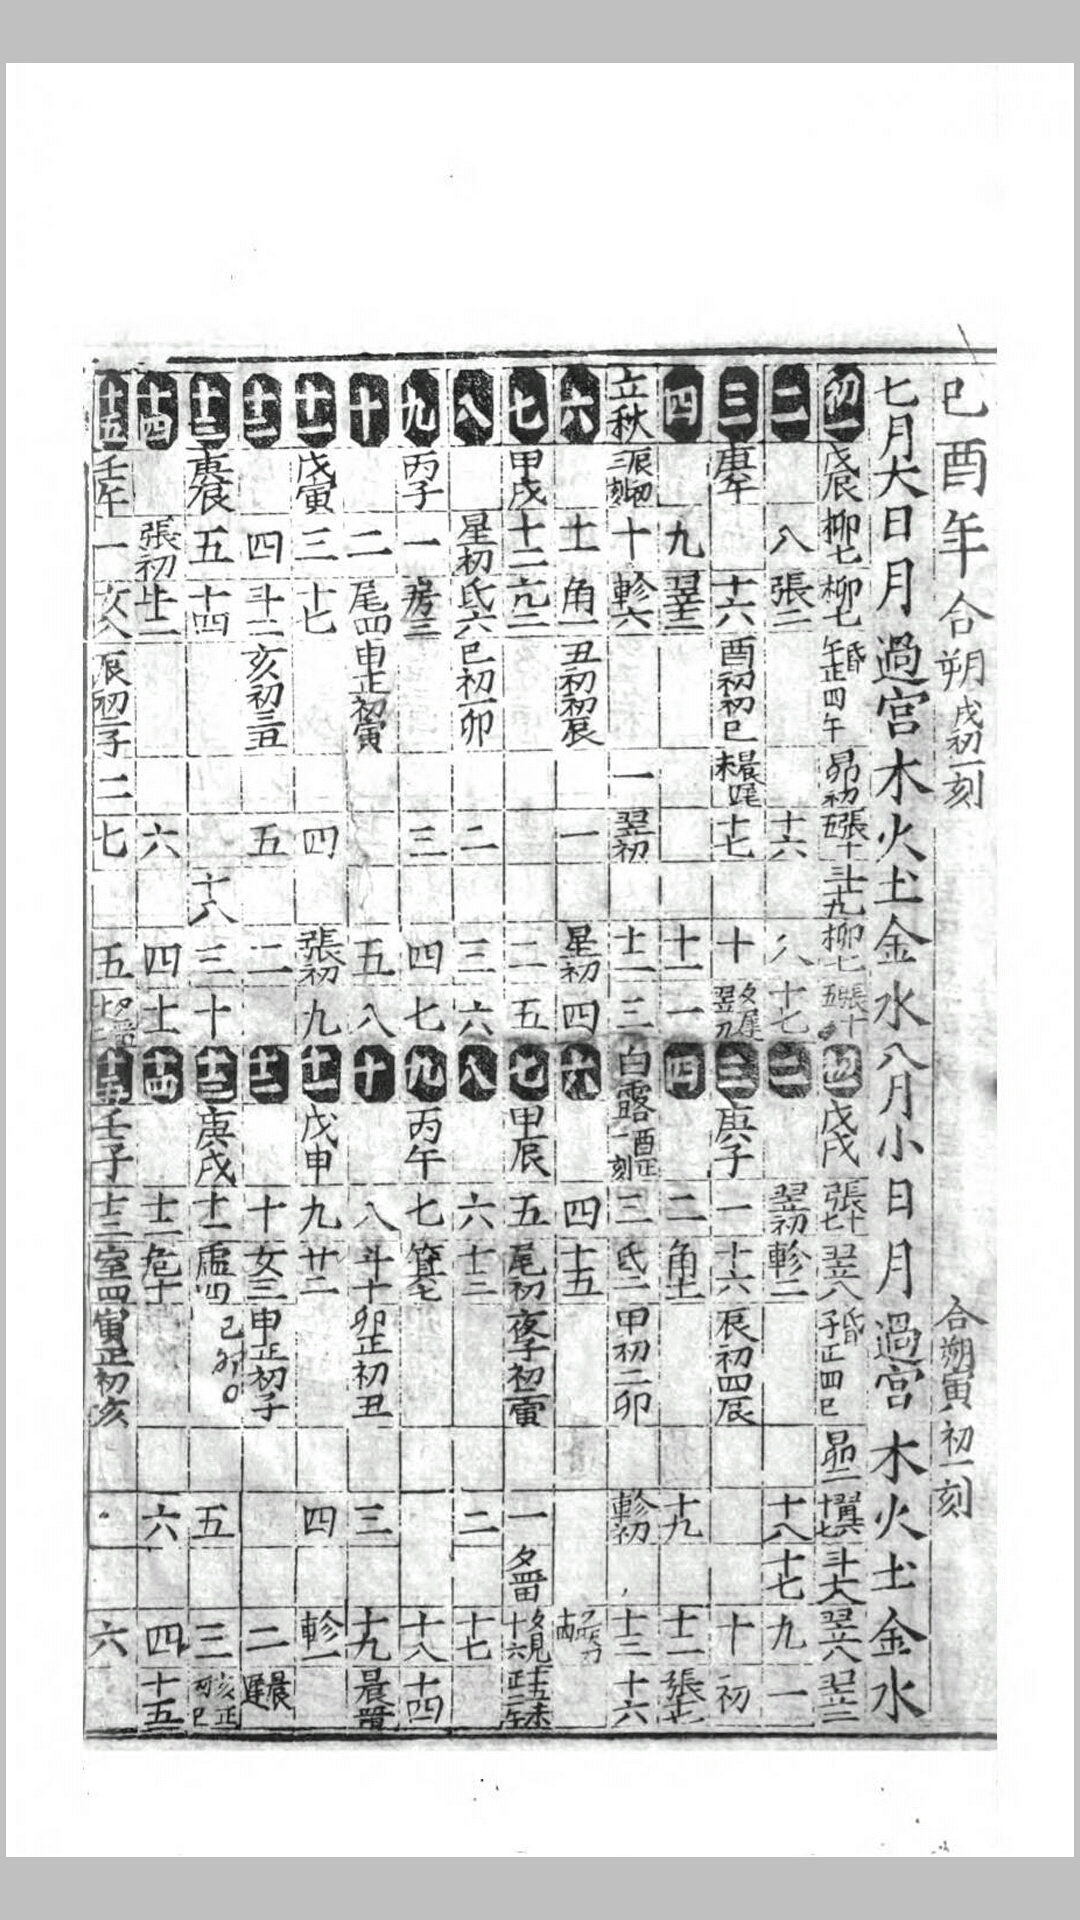 己酉年合朔戌初一刻 合朔寅初一刻
七月大日月過宮木火土金水八月小日月過宮木火土金水
初一 戊辰 柳七 柳七 昏午正四午 昴初 張十五 斗十九 柳七 張十五 初一 戊戌 張十七 翌八 昏子正四巳 昴二 翼十七 斗十六 翌六 翌三
二 八 張二 十六 八 十七 二 翌初 軫二 十八 十七 九 一
三 庚午 十六 酉初初巳 十七 十 三 庚子 一 十六 辰初四辰 十 初
四 九 翌十三 十一 一 四 二 角十 十九 十二 張
立秋 辰初三刻 十 軫六 一 翌初 十二 三 白露 酉正一刻 三 氐二 申初二卯 軫初 十三 十六
六 十一 角一 丑初初辰 一 星初 四 六 四 十五
七 甲戌 十二 亢二 二 五 七 甲辰 五 尾初 夜子初一寅 一 夕留
八 星初 氐六 巳初一卯 二 三 六 八 六 十三 二 十七
九 丙子 一 房三 三 四 七 九 丙午 七 箕七 十八 十四
十 二 尾四 申正初寅 五 八 十 八 斗十 卯正初丑 三 十九 晨留
十一 戊寅 三 十七 四 張初 九 十一 戊申 九 廿二 四 軫一
十二 四 斗二 亥初三丑 五 二 十二 十 女三 申正初子 二 晨遲
十三 庚辰 五 十四 十八 三 十 十三 庚戌 十一 虛四 五 三
十四 張初 六 四 十一 十四 十二 危十 六 四 十五
十五 壬午 一 女八 辰初二子 二 七 五 十五 壬子 十三 室四 寅正初亥 六